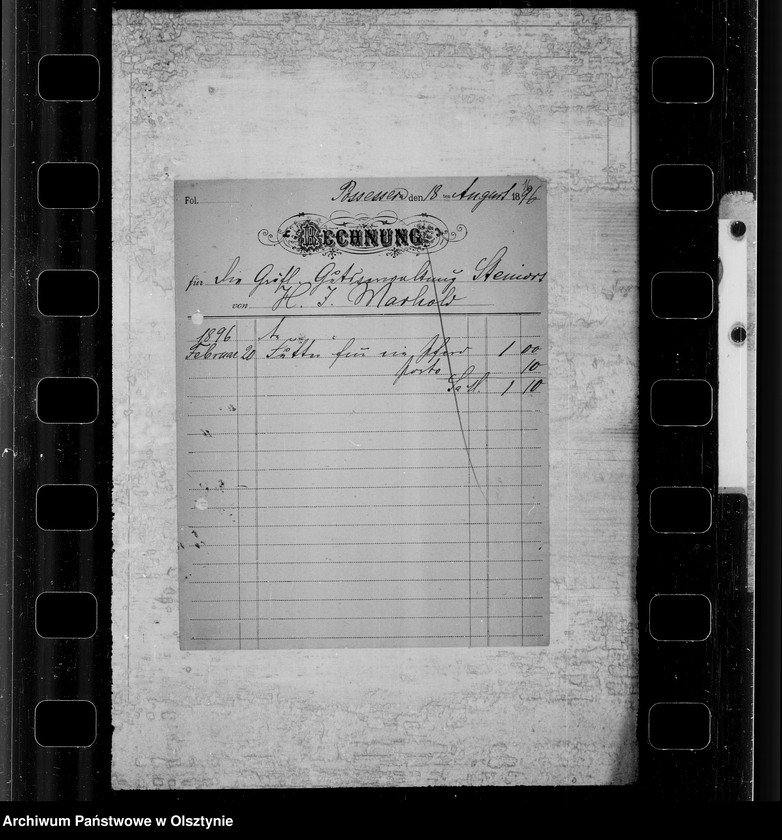 Fol. Possessern den 18 ten August 1896
RECHNUNG
für die Gräfl. Gutsverwaltung Steinort
von H. J. Marhold
1896 An
Februar 20 Futter für ein Pferd 1 00
Porto 10
Sa M. 1 10
Archiwum Państwowe w Olsztynie